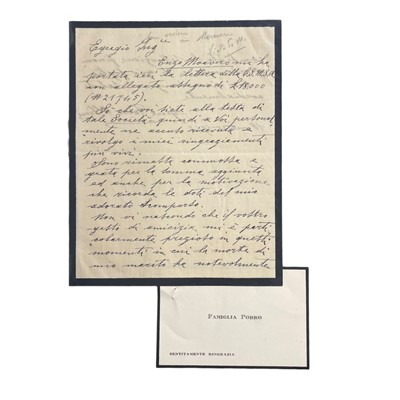 Egregio Sig
Enzo Moavero mi ha
portato ieri la lettera della
con allegato assegno di £
(# 21765).
So che voi siete alla testa di
tale Società quindi a Voi personal
mente ne accuso ricevuta e
rivolgo i miei ringraziamenti
più vivi.
Sono rimasta commossa e
grata per la somma aggiunta
ed anche per la motivazione
che ricorda le doti del mio
adorato Scomparso.
Non vi nascondo che il vostro
gesto di amicizia mi è parti
colarmente prezioso in questi
momenti in cui la morte di
mio marito ha notevolmente
FAMIGLIA PORRO
SENTITAMENTE RINGRAZIA